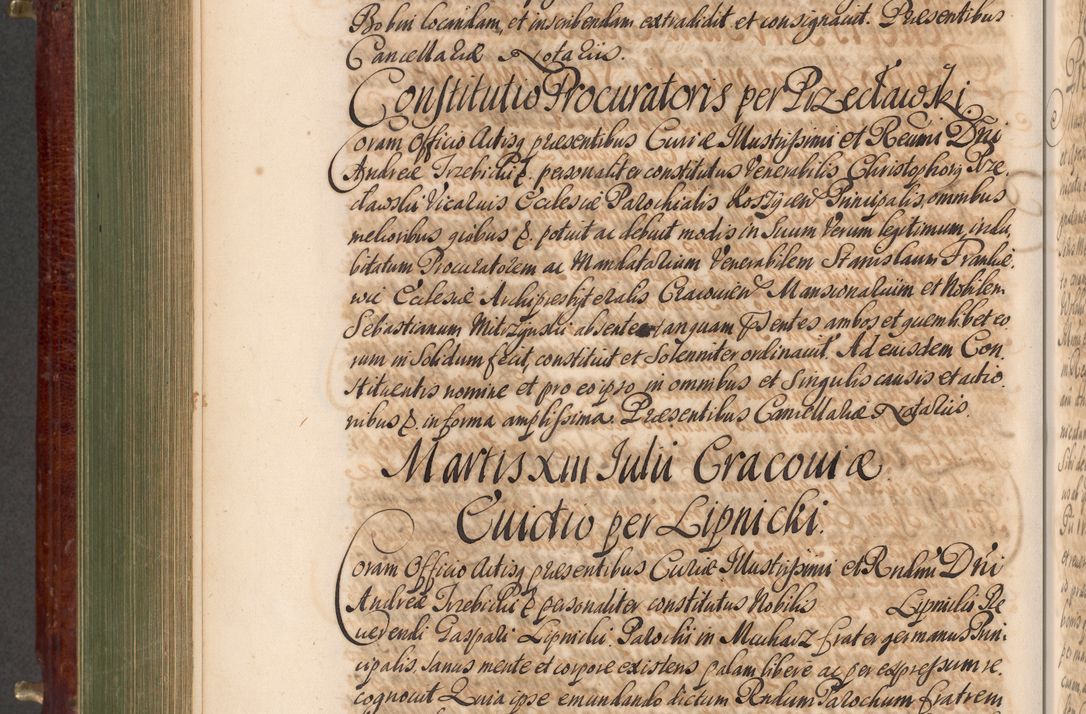 Bobin locandam, et inscribendam extradidit et consignavit. Præsentibus
Cancellariæ Notariis.
Constitutio Procuratoris per Przecławski.
Coram Officio Actisq præsentibus Curiæ Illustrissimi et Reumi Dni
Andreæ Trzebicki &. personaliter constitutus Venerabilis Christophorg Prze
cławski Vicarius Ecclesiæ Parochialis Koszycen Principalis, omnibus
melioribus quibus &. potuit ac debuit modis in Suum Verum legitimum, indu
bitatum Procuratorem ac Mandatarium Venerabilem Stanislaum Frankie
wic Ecclesiæ Archipresbyteralis Cracovien Mansionarium et Nobilem
Sebastianum Mitrzynski absentes tanquam Psentes ambos et quemlibet eo
rum in Solidum fecit, constituit et Solenniter ordinavit. Ad eiusdem Con
stituentis nomine et pro eo ipso in omnibus et Singulis causis et actio
nibus &. in forma amplissima. Præsentibus Cancellariæ Notariis.
Martis XIII Iulii Cracoviæ
Evictio per Lipnicki.
Coram Officio Actisq præsentibus Curiæ Illustrissimi et Rndmi Dni
Andreæ Trzebicki & personaliter constitutus Nobilis Lipnicki Re
verendi Gaspari Lipnicki Parochi in Mucharz frater germanus Prin
cipalis sanus mente et corpore existens palam libere ac per expressum re
cognovit Quia ipse emundando dictum Rndum Parochum fratrem